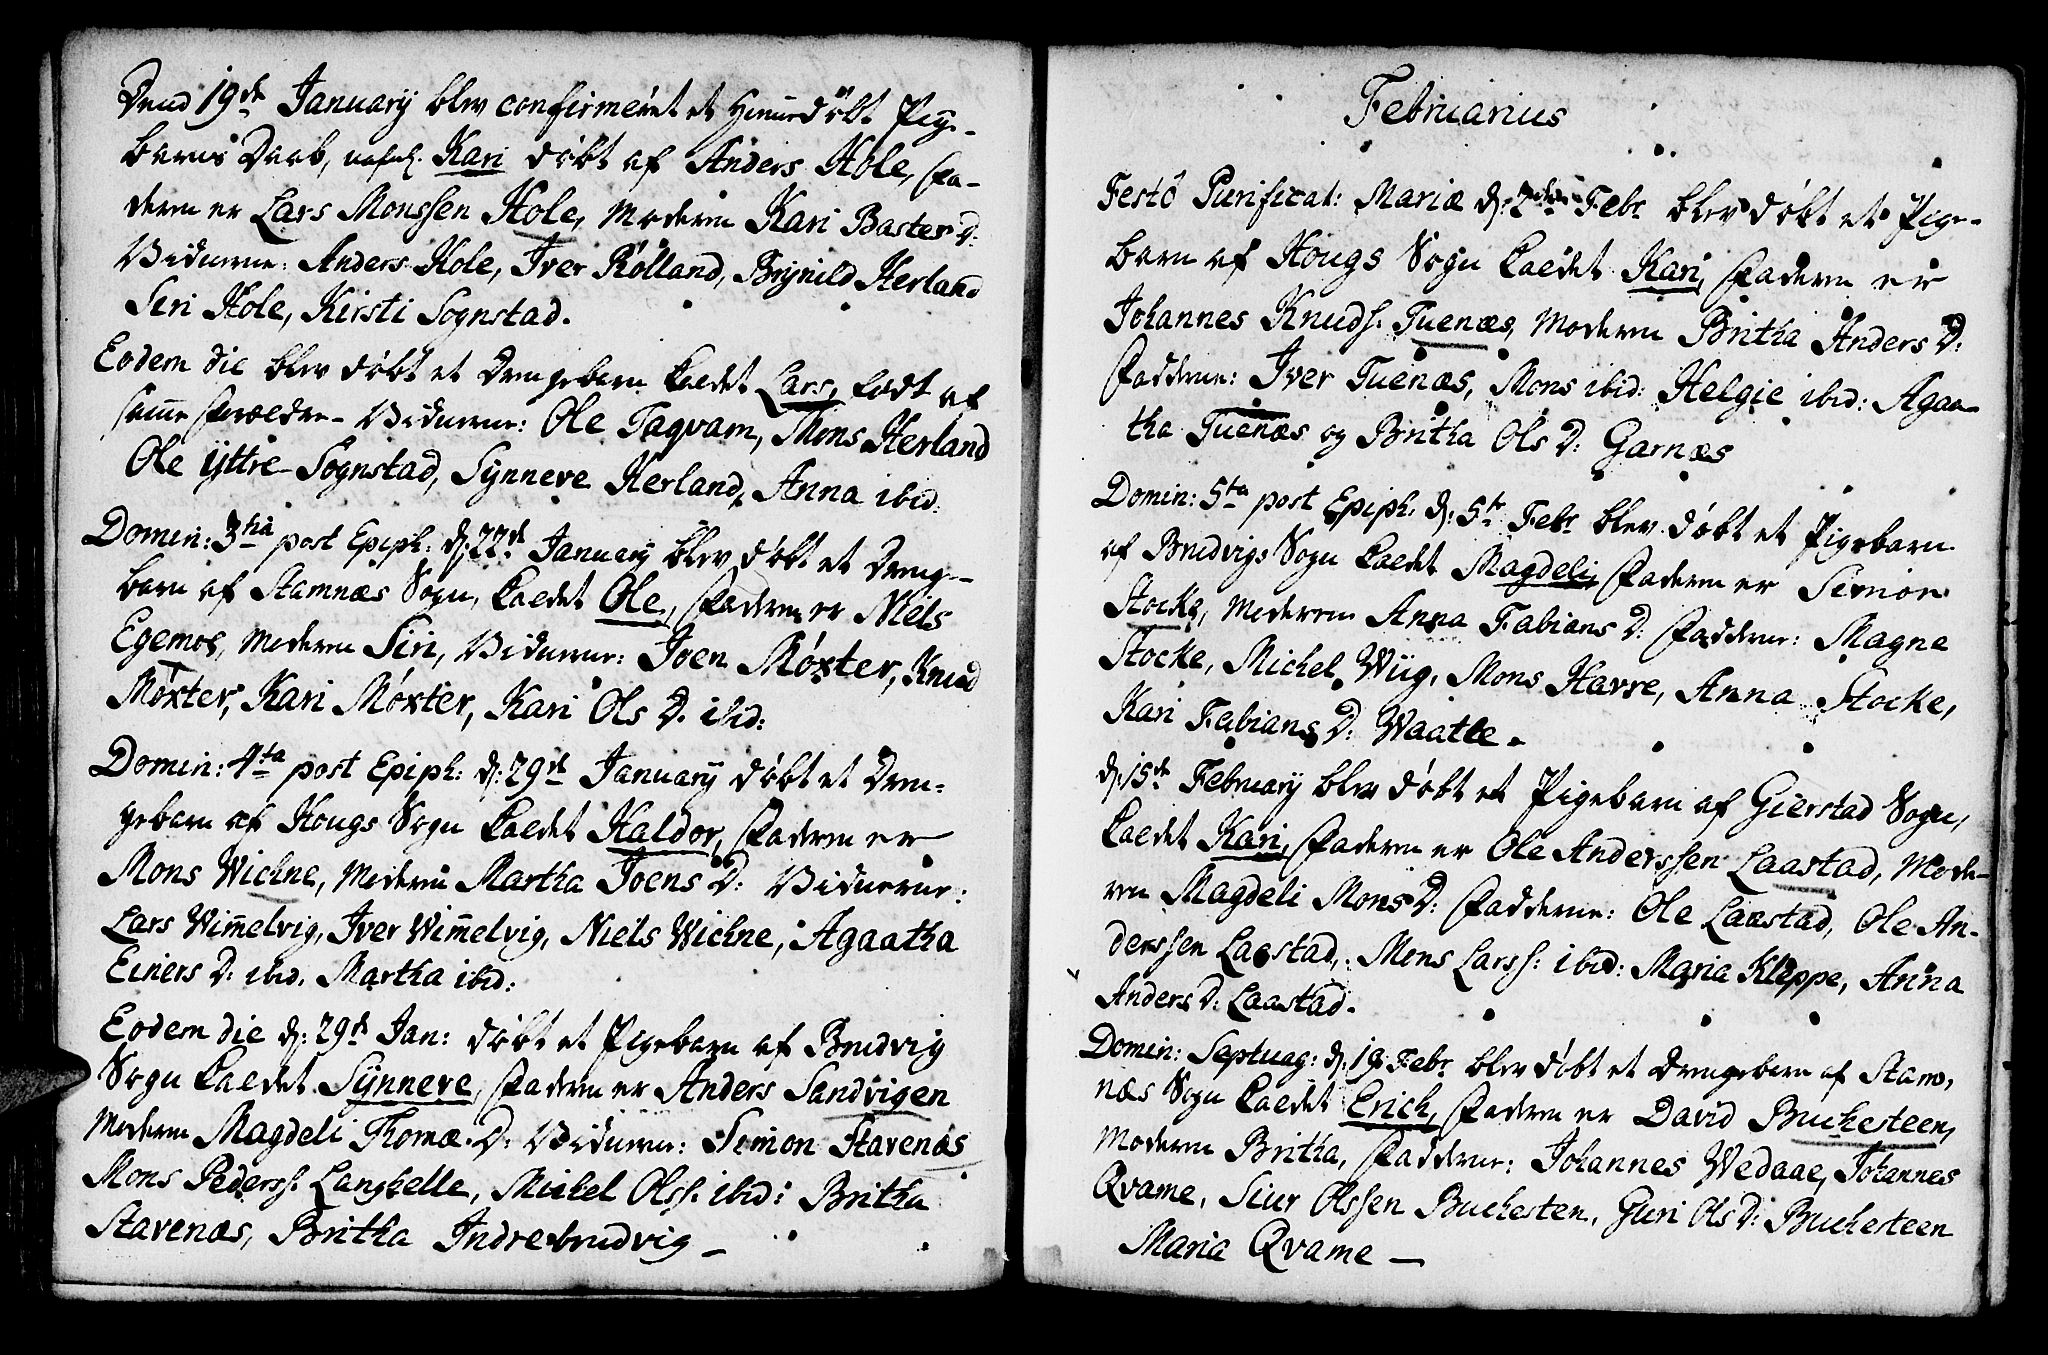 Dend 19de January blev confirmeret et Hiemmedøbt Pige-
barns Daab, nafnl. Kari døbt af Anders Hole, Fa-
deren er Lars Monssen Hole, Moderen Kari Baster D:
Vidnerne: Anders Hole, Iver Rølland, Brynild Herland
Siri Hole, Kirsti Sognstad.
Eodem die blev døbt et Drengebarn kaldet Lars, født af
samme Forældre- Vidnerne: Ole Taqvam, Mons Herland
Ole yttre Sognstad, Synneve Herland, Anna ibid:
Domin: 3tia post Epiph: d: 22de January blev døbt et Drenge-
barn af Stamnæs Sogn, kaldet Ole, Faderen er Niels
Egemoe, Moderen Siri, Vidnerne: Joen Møxter, Knud
Møxter, Kari Møxter, Kari Ols D. ibid:
Domin: 4ta post Epiph: d: 29de January døbt et Dren-
gebarn af Hougs Sogn kaldet Haldor, Faderen er
Mons Wichne, Moderen Martha Joens D: Vidnerne:
Lars Wimmelvig, Iver Wimmelvig, Niels Wichne, Agaatha
Einers D: ibid. Martha ibid:
Eodem die d: 29de Jan: døbt et Pigebarn af Brudvig
Sogn kaldet Synneve, Faderen er Anders Sandvigen
Moderen Magdeli Thomæ D: Vidnerne: Simon Stavenæs
Mons Pederss: Langhelle, Mickel Olss: ibid: Britha
Stavenæs, Britha Indrebrudvig-
Februarius
Festô Purificat: Mariæ d: 2den Febr blev døbt et Pige-
barn af Hougs Sogn kaldet Kari, Faderen er
Johannes Knuds: Tuenæs, Moderen Britha Anders D:
Fadderne: Iver Tuenæs, Mons ibid: Helgie ibid: Agaa-
tha Tuenæs og Britha Ols D: Garnæs
Domin: 5ta post Epiph: d: 5te Febr blev døbt et Pigebarn
af Brudvigs Sogn kaldet Magdeli, Faderen er Simon
Stocke, Moderen Anna Fabians D: Fadderne: Magne
Stocke, Michel Wiig, Mons Havre, Anna Stocke,
Kari Fabians D: Waatle.
d: 15de February blev døbt et Pigebarn af Gierstad Sogn,
kaldet Kari, Faderen er Ole Anderssen Laastad, Mode-
ren Magdeli Mons D: Fadderne: Ole Laastad, Ole An-
derssen Laastad, Mons Larss: ibid: Maria Kleppe, Anna
Anders D: Laastad.
Domin: Septuag: d: 19 Febr blev døbt et Drengebarn af Stam-
næs Sogn kaldet Erich, Faderen er David Buchesteen,
Moderen Britha, Fadderne: Johannes Wedaae, Johannes
Qvame, Siur Olssen Buchesten, Guri Ols D: Buchesteen
Maria Qvame-